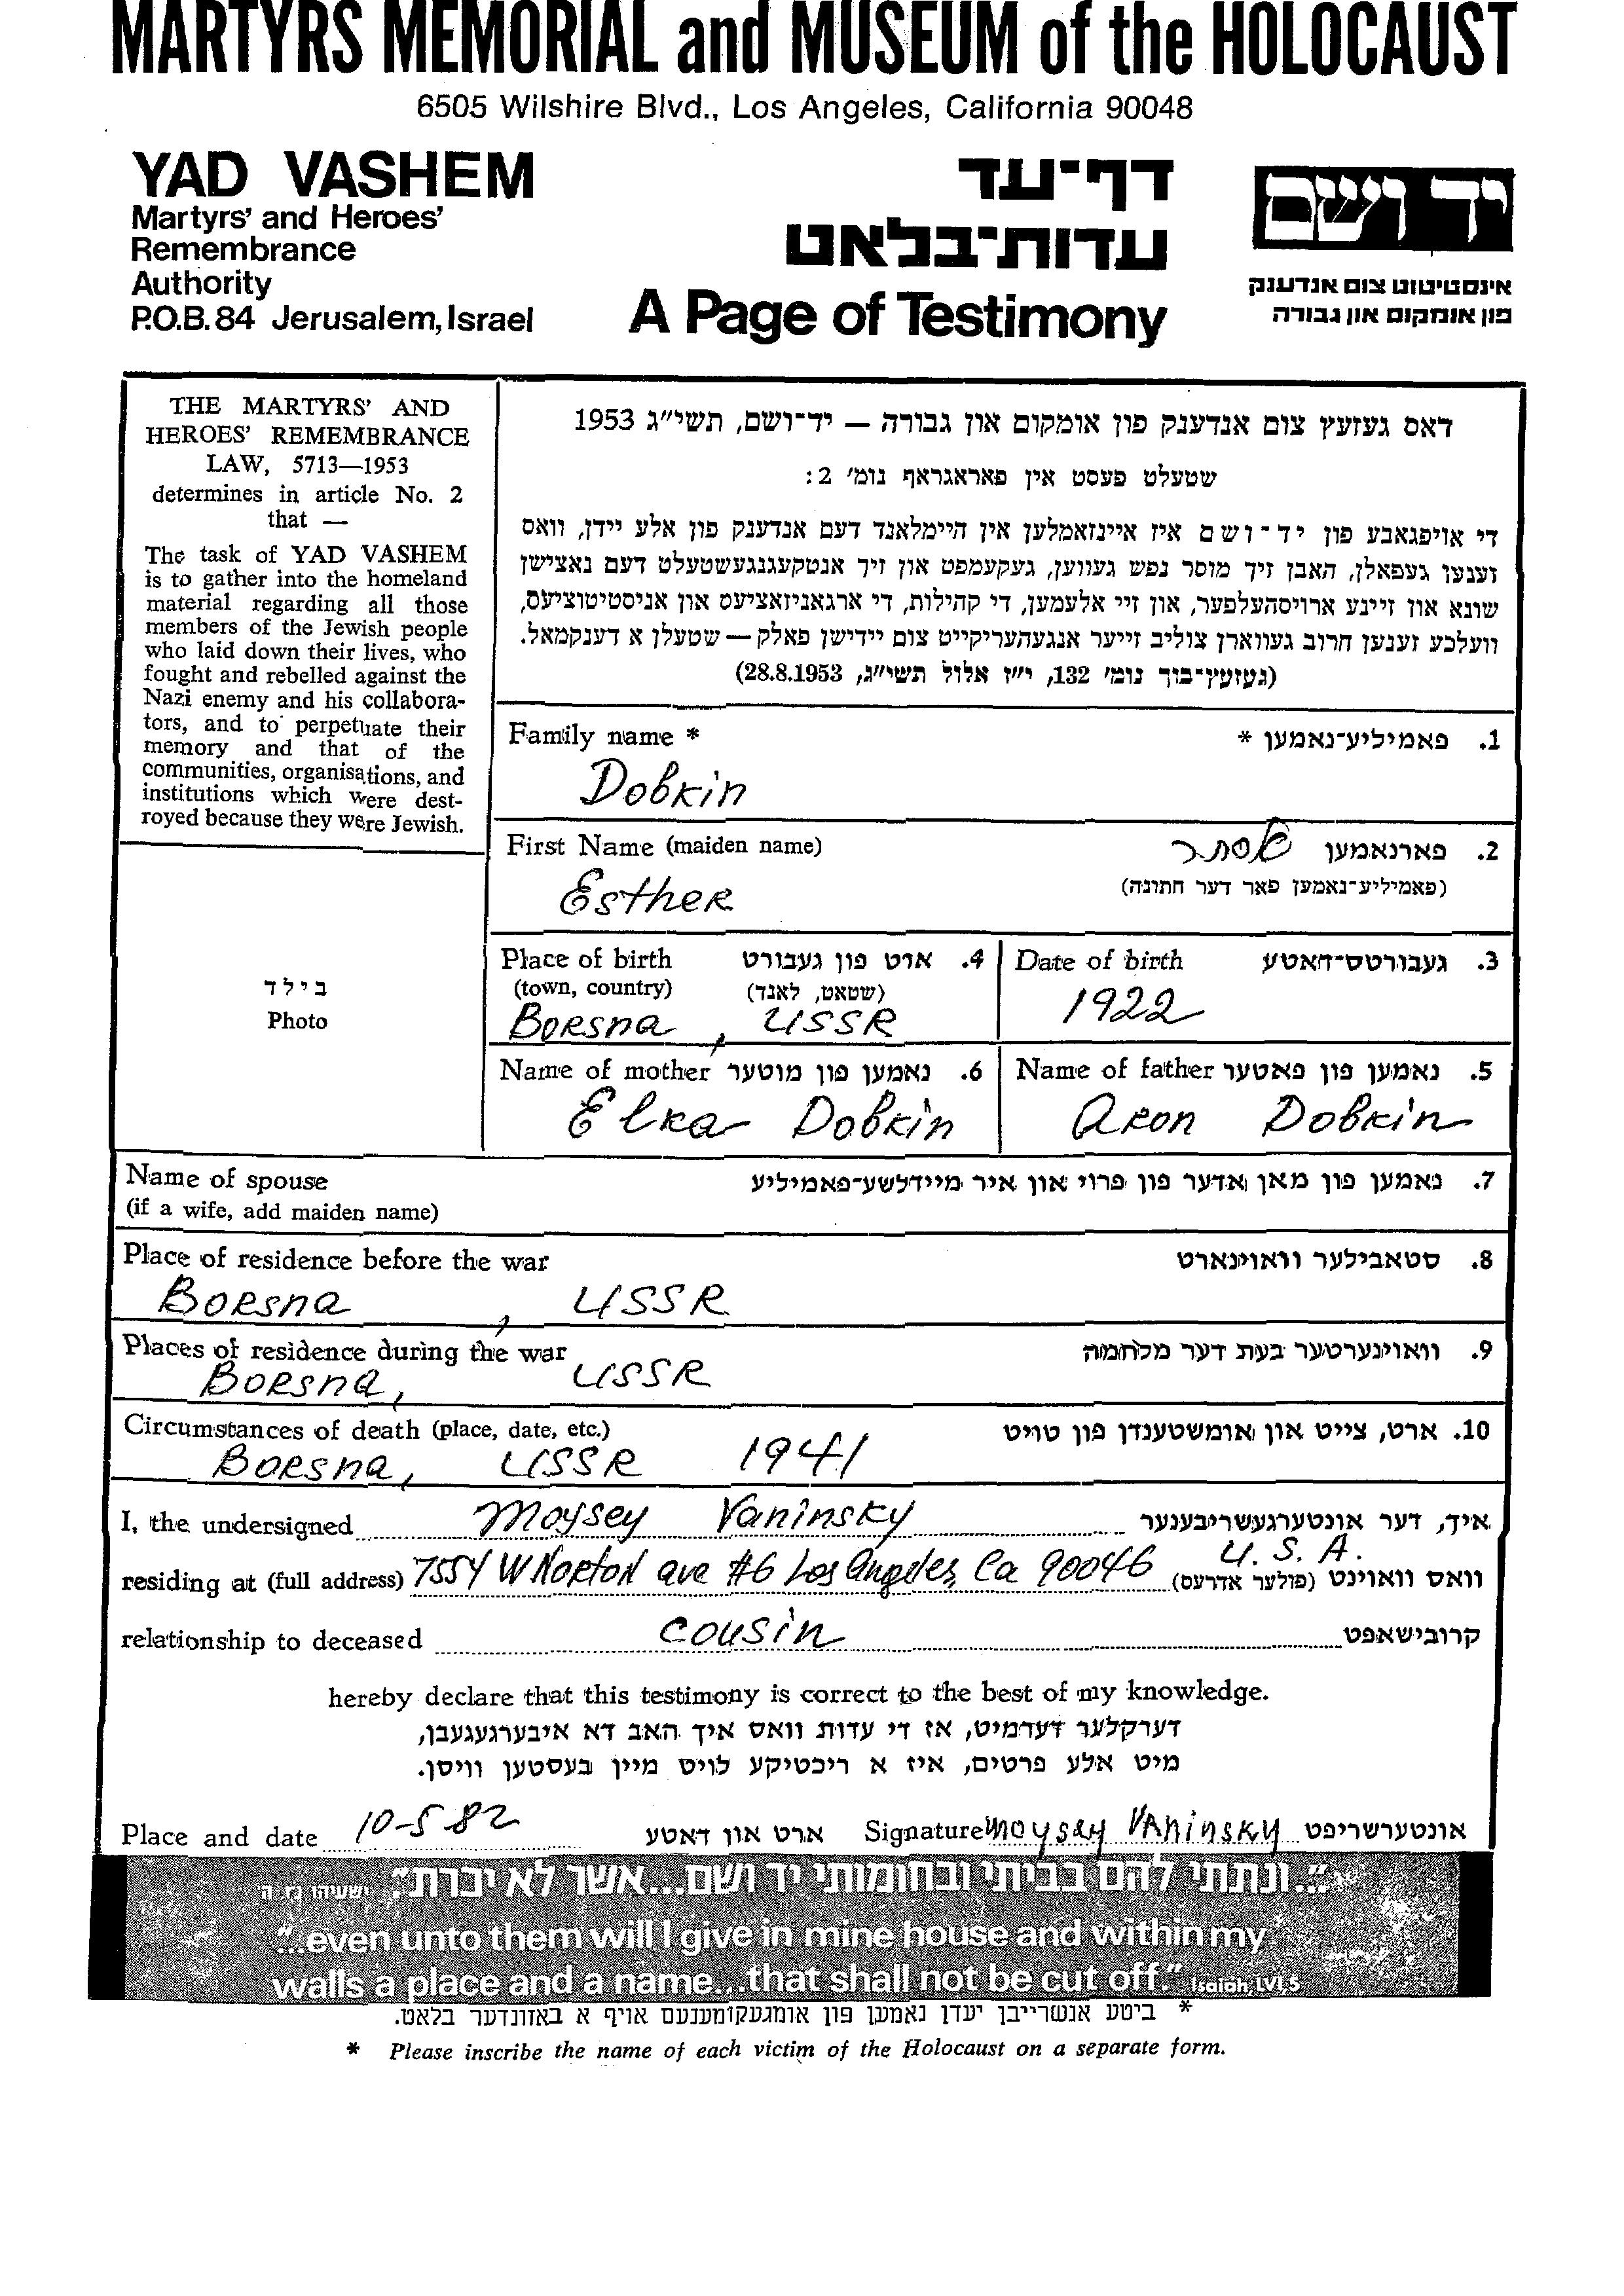 MARTYRS MEMORIAL and MUSEUM of the HOLOCAUST
6505 Wilshire Blvd., Los Angeles, California 90048
YAD VASHEM
Martyrs' and Heroes'
Remembrance
Authority
P.O.B. 84 Jerusalem, Israel
דף־עד
עדות־בלאט
A Page of Testimony
יד ושם
אינסטיטוט צום אנדענק
פון אומקום און גבורה
THE MARTYRS' AND
HEROES' REMEMBRANCE
LAW, 5713—1953
determines in article No. 2
that —
The task of YAD VASHEM
is to gather into the homeland
material regarding all those
members of the Jewish people
who laid down their lives, who
fought and rebelled against the
Nazi enemy and his collabora-
tors, and to perpetuate their
memory and that of the
communities, organisations, and
institutions which were dest-
royed because they were Jewish.
דאס געזעץ צום אנדענק פון אומקום און גבורה — יד־ושם, תשי״ג 1953
שטעלט פעסט אין פאראגראף נומ׳ 2:
די אויפגאבע פון יד־ושם איז איינזאמלען אין היימלאנד דעם אנדענק פון אלע יידן, וואס
זענען געפאלן, האבן זיך מוסר נפש געווען, געקעמפט און זיך אנטקעגנגעשטעלט דעם נאצישן
שונא און זיינע ארויסהעלפער, און זיי אלעמען, די קהילות, די ארגאניזאציעס און אינסטיטוציעס,
וועלכע זענען חרוב געווארן צוליב זייער אנגעהעריקייט צום יידישן פאלק — שטעלן א דענקמאל.
(געזעץ־בוך נומ׳ 132, י״ז אלול תשי״ג, 28.8.1953)
Family name * 1. פאמיליע־נאמען *
Dobkin
First Name (maiden name) 2. פארנאמען אסתר
(פאמיליע־נאמען פאר דער חתונה)
Esther
Place of birth 4. ארט פון געבורט
(town, country) (שטאט, לאנד)
Borsna, USSR
Date of birth 3. געבורטס־דאטע
1922
בילד
Photo
Name of mother 6. נאמען פון מוטער
Elka Dobkin
Name of father 5. נאמען פון פאטער
Aron Dobkin
Name of spouse 7. נאמען פון מאן אדער פון פרוי און איר מיידלשע־פאמיליע
(if a wife, add maiden name)
Place of residence before the war 8. סטאבילער וואוינארט
Borsna, USSR
Places of residence during the war 9. וואוינערטער בעת דער מלחמה
Borsna, USSR
Circumstances of death (place, date, etc.) 10. ארט, צייט און אומשטענדן פון טויט
Borsna, USSR 1941
I, the undersigned Moysey Vaninsky איך, דער אונטערגעשריבענער
U. S. A.
residing at (full address) 7554 W Norton ave #6 Los Angeles, Ca 90046 וואס וואוינט (פולער אדרעס)
relationship to deceased cousin קרובישאפט
hereby declare that this testimony is correct to the best of my knowledge.
דערקלער דערמיט, אז די עדות וואס איך האב דא איבערגעגעבן,
מיט אלע פרטים, איז א ריכטיקע לויט מיין בעסטען וויסן.
Place and date 10-5 82 ארט און דאטע Signature Moysey Vaninsky אונטערשריפט
״...ונתתי להם בביתי ובחומותי יד ושם...אשר לא יכרת״. ישעיהו נו ה׳
"...even unto them will I give in mine house and within my
walls a place and a name...that shall not be cut off." Isaiah, LVI, 5
* ביטע אנשרייבן יעדן נאמען פון אומגעקומענעם אויף א באזונדער בלאט.
* Please inscribe the name of each victim of the Holocaust on a separate form.